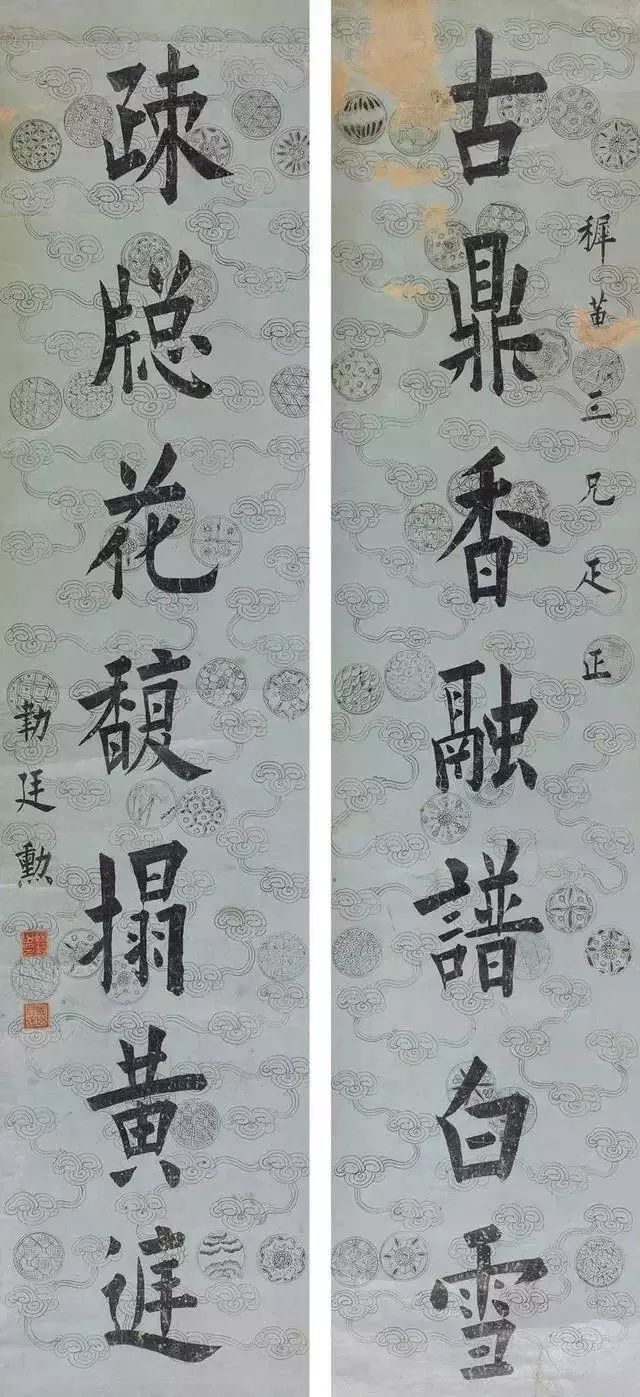 古鼎香融譜白雪
三兄疋正
疎牕花馥搨黄庭
廷勳